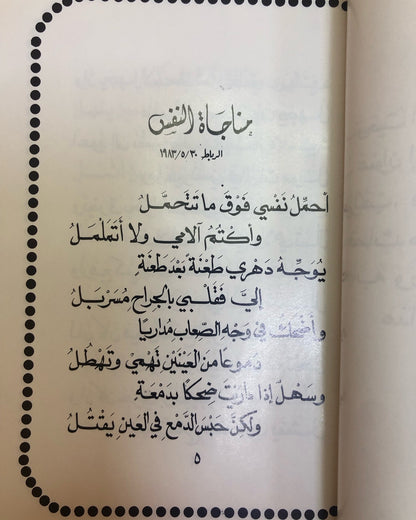 مناجاة النفس
الرباط ١٩٨٣/٥/٣٠
أحمّلُ نَفْسي فَوْقَ ما تَتَحمَّلُ
وأكتُمُ آلامي ولا أتَمَلْمَلُ
يُوَجِّهُ دَهْري طَعْنَةً بَعْدَ طَعْنَةٍ
إليَّ فَقَلْبي بالجراحِ مُسَرْبَلُ
وأضحكُ في وَجْهِ الصِّعابِ مُدارِياً
دموعاً من العيْنَيْنِ تَهْمي وتَهْطُلُ
وسَهْلٌ إذا دارَيْتَ ضِحْكاً بدَمْعَةٍ
ولكِنَّ حَبْسَ الدَّمْعِ في العَينِ يَقْتُلُ
٥